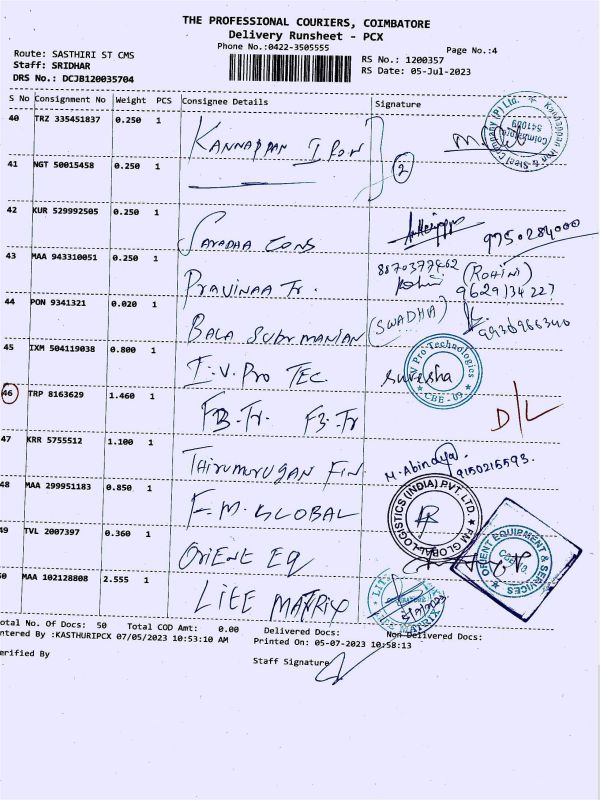 THE PROFESSIONAL COURIERS, COIMBATORE
Delivery Runsheet - PCX
Phone No.:0422-3505555
Page No.:4
Route: SASTHIRI ST CMS
Staff: SRIDHAR
DRS No.: DCJB120035704
RS No.: 1200357
RS Date: 05-Jul-2023
S No Consignment No Weight PCS Consignee Details Signature
40 TRZ 335451837 0.250 1 KANNAPPAN IRON
Kandappan Iron & Steel Company (P) Ltd. Coimbatore 641009
41 NGT 50015458 0.250 1
2
42 KUR 529992505 0.250 1 SARADHA CONS 9750284000
43 MAA 943310051 0.250 1 PRAVINAA Tr. 8870377462 (ROHINI)
9629134227
44 PON 9341321 0.020 1 BALA SUBRMANIAN (SWADHA)
45 IXM 504119038 0.800 1 I.V. PRO TEC Suresha
V Pro Technologies CBE-09
46 TRP 8163629 1.460 1 FB-Tr. F3-Tr D/L
47 KRR 5755512 1.100 1 THIRUMURUGAN FIN. M. Abinaya
9150215593.
48 MAA 299951183 0.850 1 F.M. GLOBAL
FM GLOBAL LOGISTICS (INDIA) PVT. LTD.
49 TVL 2007397 0.360 1 ORIENT EQ
ORIENT EQUIPMENT & SERVICES
50 MAA 102128808 2.555 1 LITE MATRIX
Total No. Of Docs: 50 Total COD Amt: 0.00 Delivered Docs: Non Delivered Docs:
Entered By :KASTHURIPCX 07/05/2023 10:53:10 AM Printed On: 05-07-2023 10:58:13
Verified By
Staff Signature